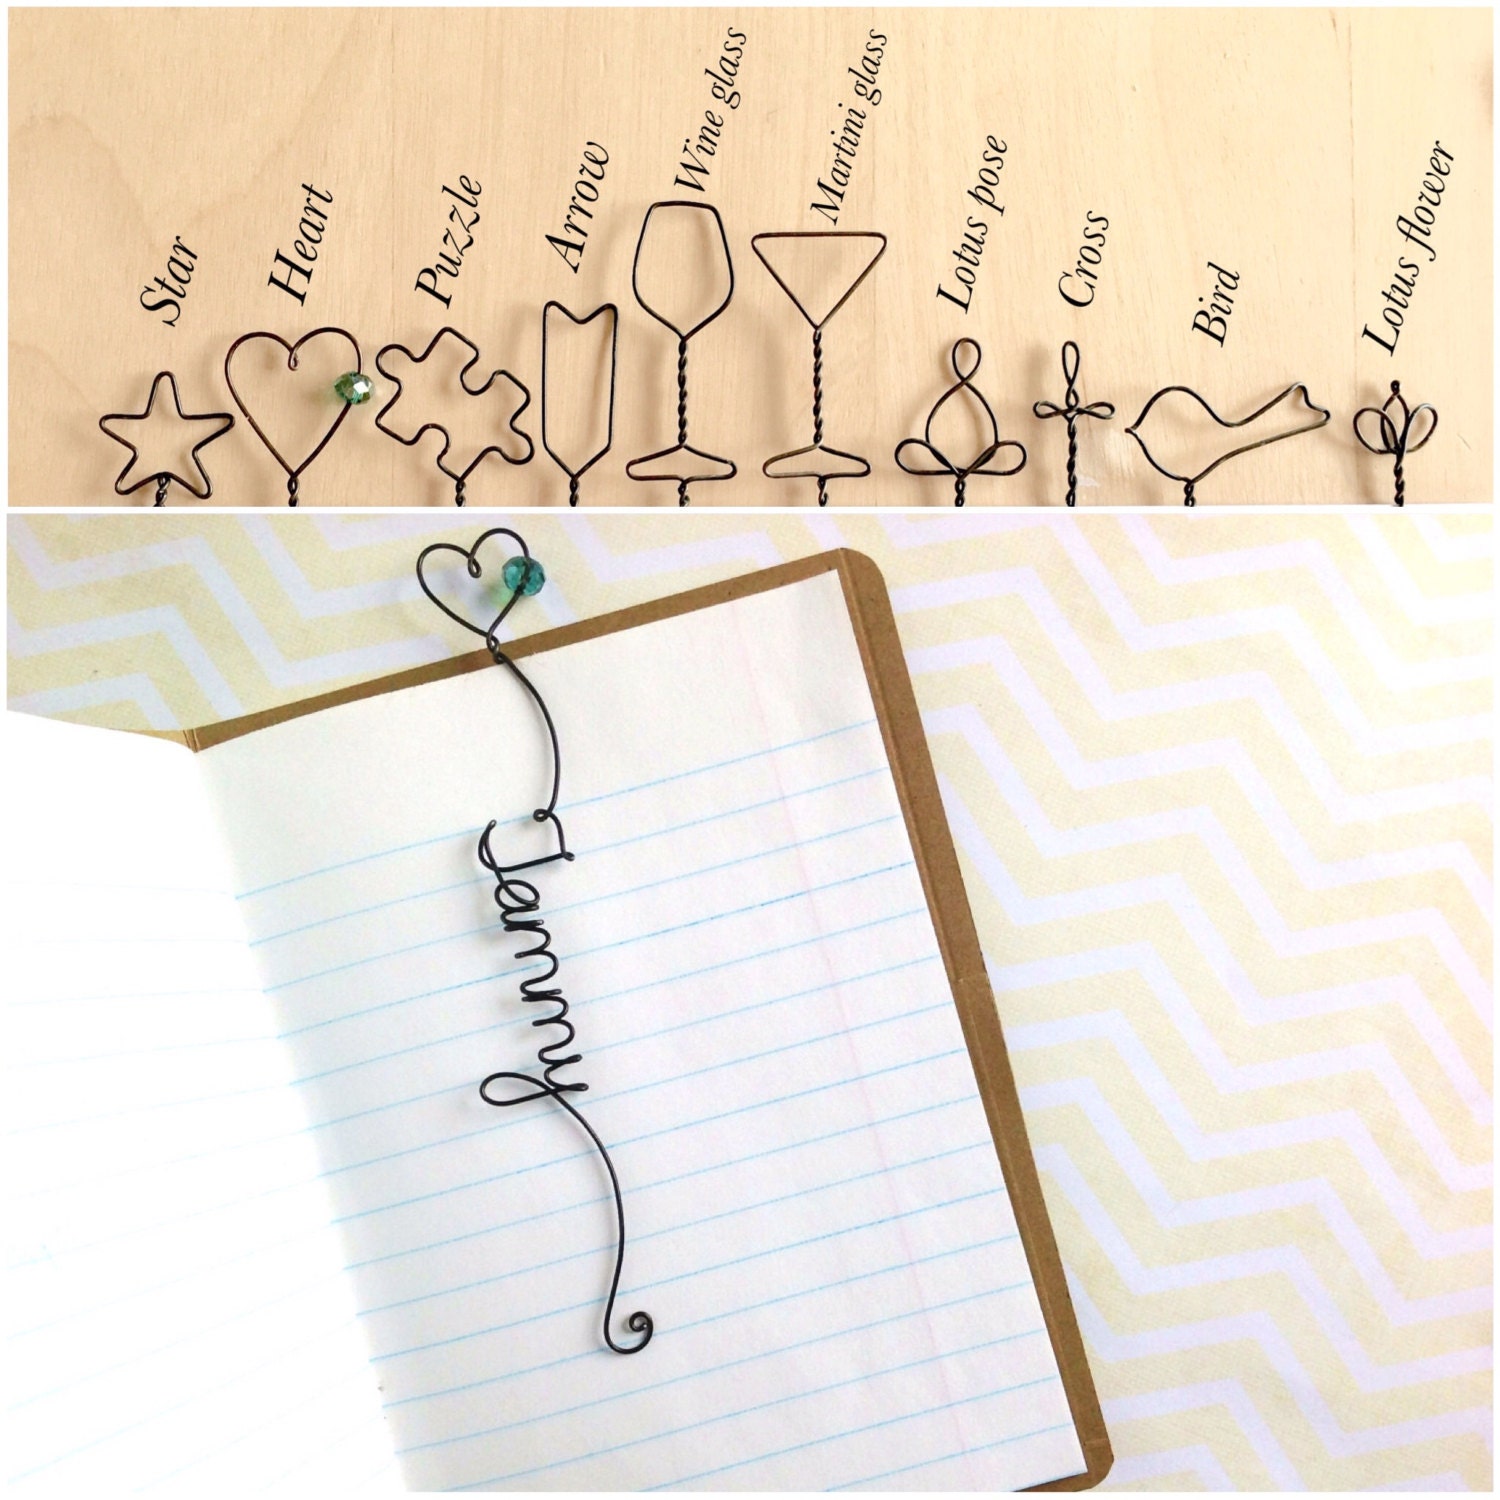 Star
Heart
Puzzle
Arrow
Wine glass
Martini glass
Lotus pose
Cross
Bird
Lotus flower
Jenny